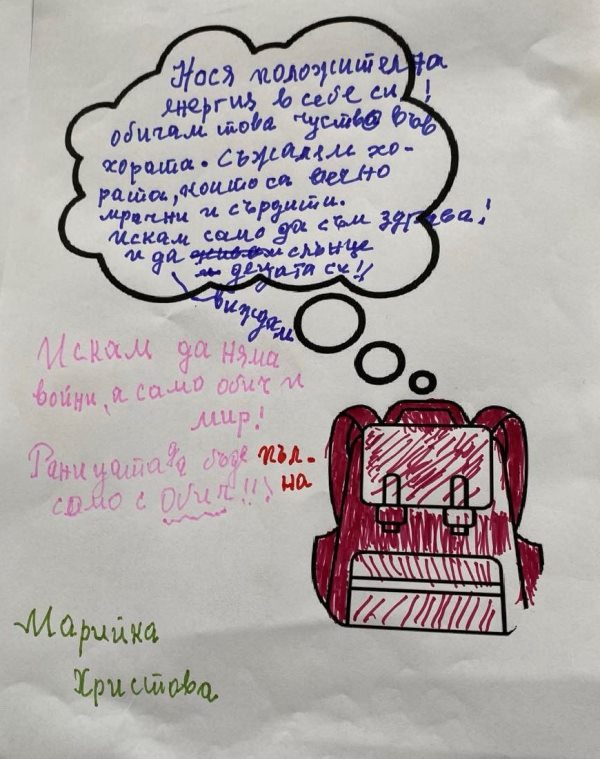 Нося положителна
енергия в себе си!
обичам това чуство във
хората. Съжалям хо-
рата, които са вечно
мрачни и сърдити.
Искам само да съм здрава!
и да виждам слънце
и децата си!!
Искам да няма
войни, а само обич и
мир!
Раницата да бъде пъл-
на
само с Обич!!!
Марийка
Христова